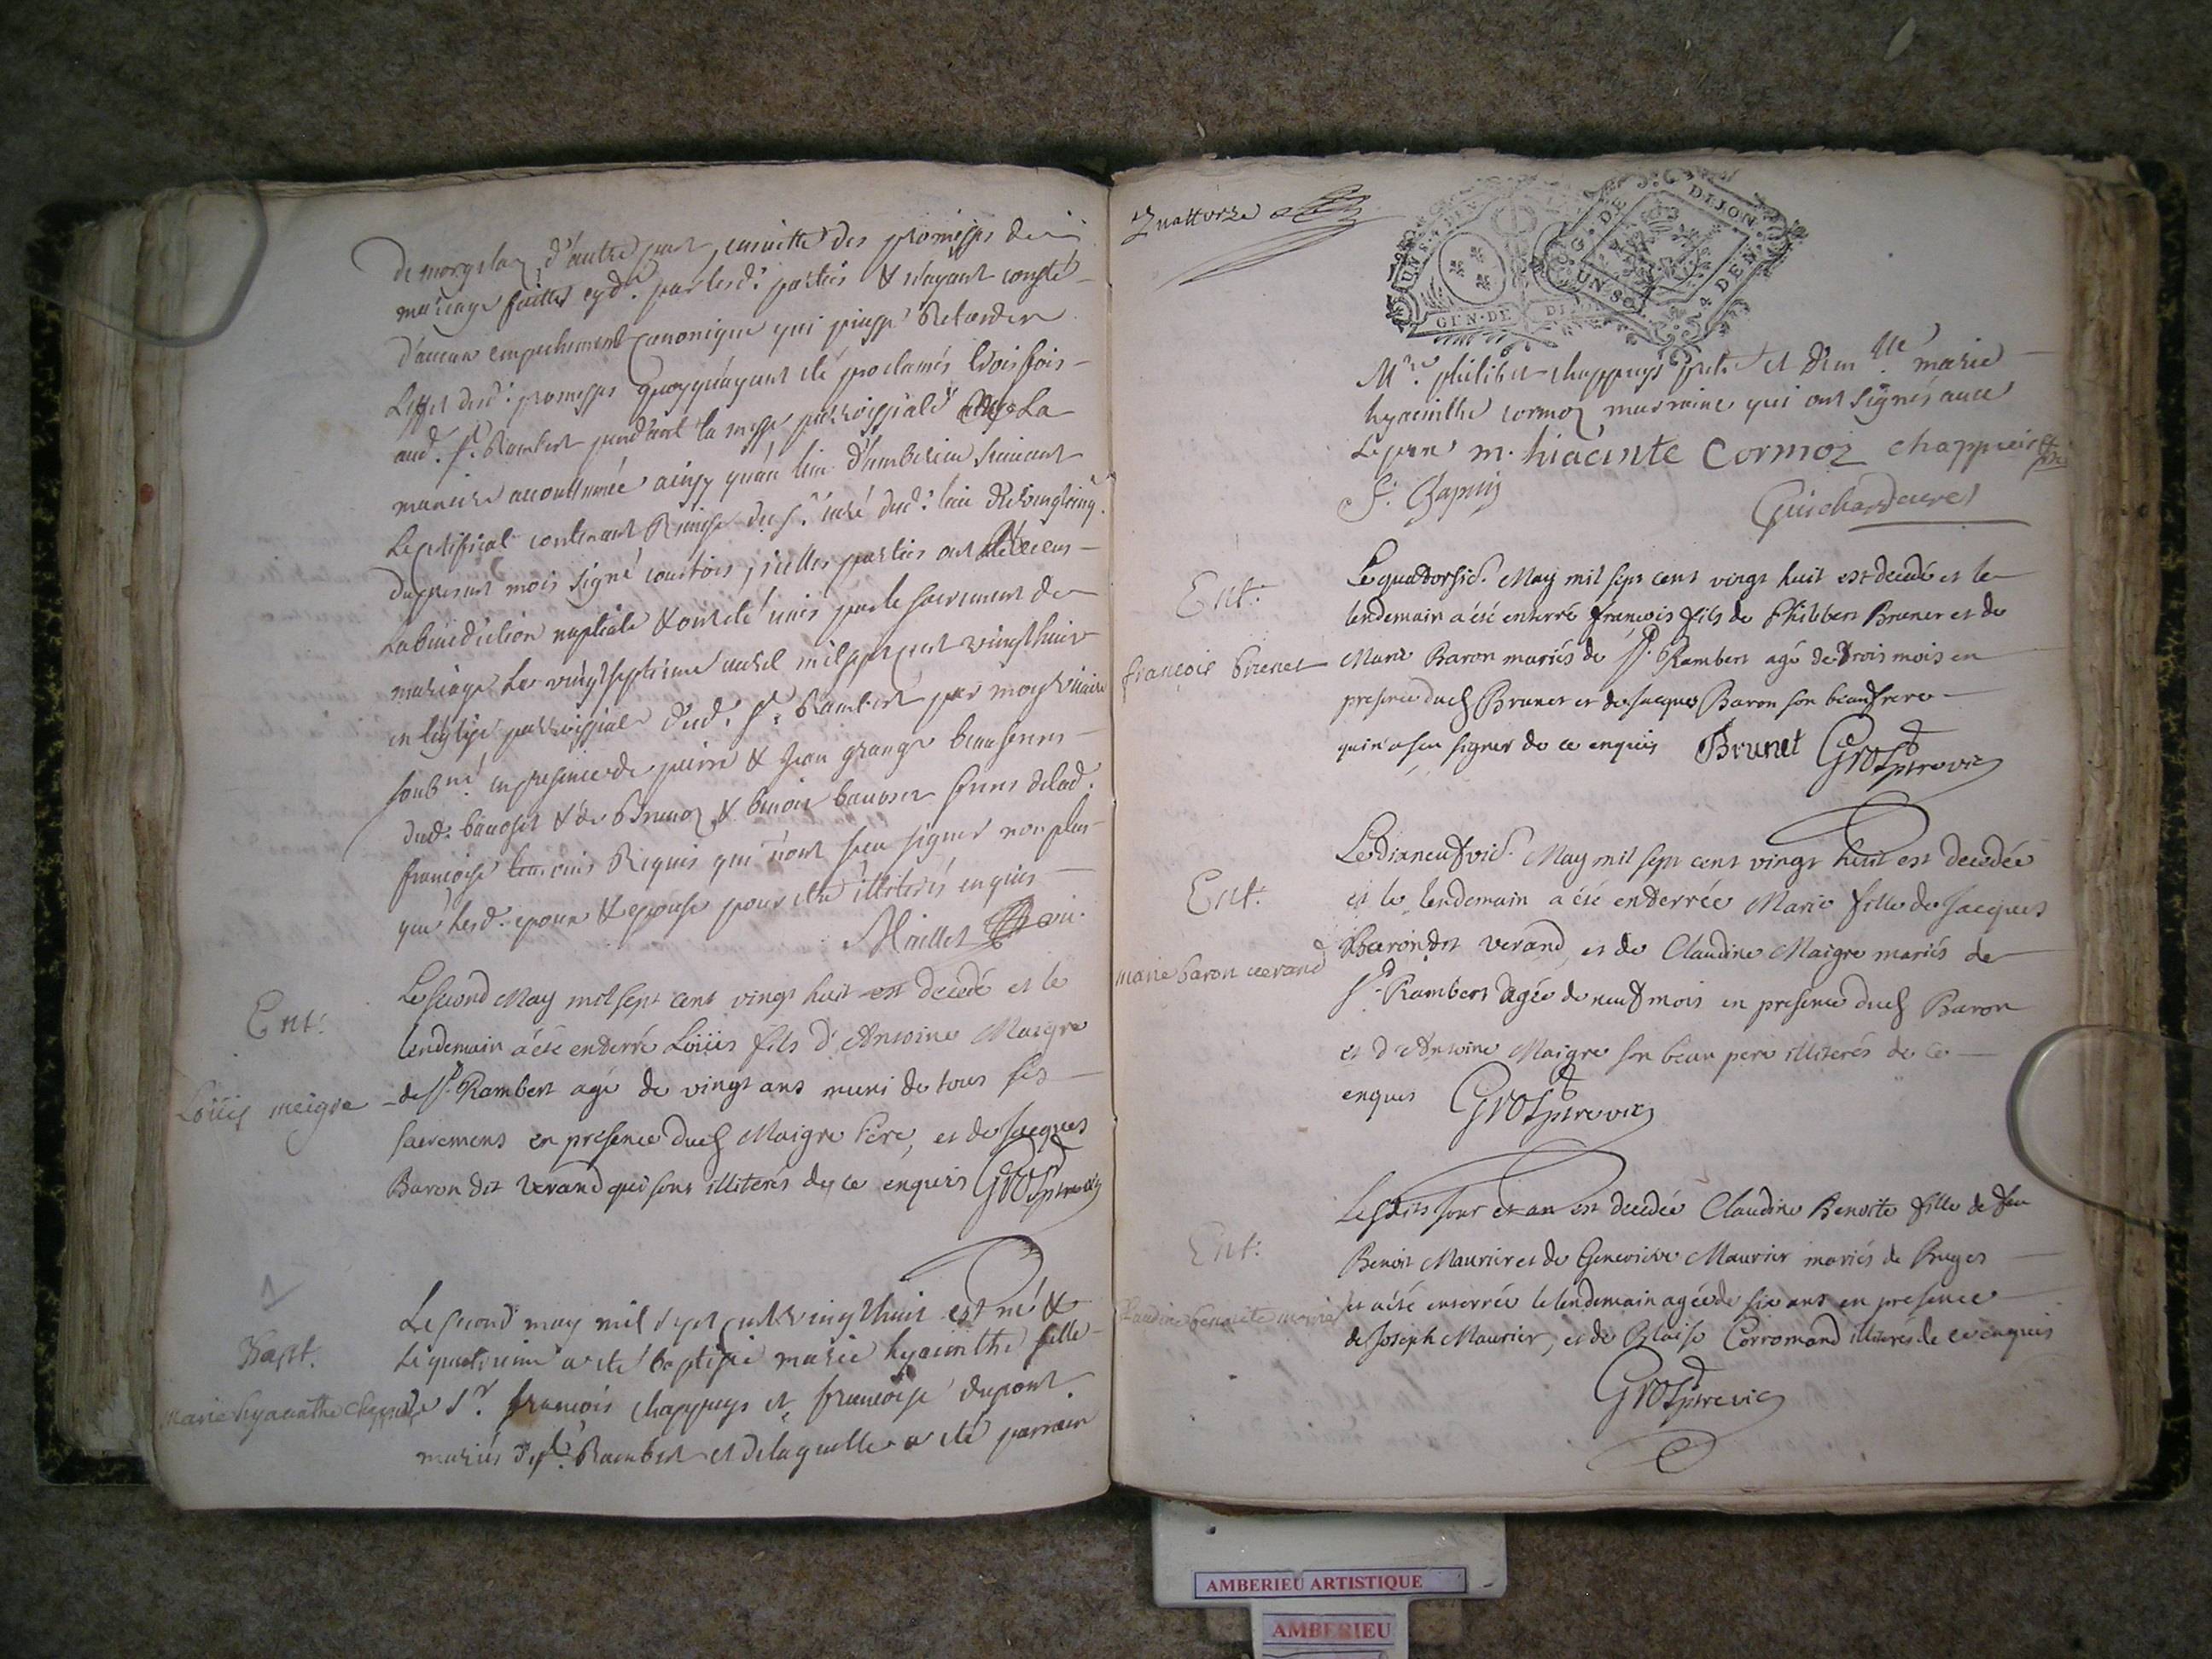 de morgelaz d'autre part, ensuitte des promesses de
mariage faittes cyd.t par lesd. parties & n'ayant consté
d'aucun empechement canonique qui puisse Retarder
L'effet desd. promesses quoyqu'ayant été proclamés trois fois
aud. St. Rambert pendant la messe parroissiale La
maniere accoutumée ainsy qu'au lieu d'amberieu suivant
Le certificat contenant Remise du Sr. curé dud. lieu
du present mois signé courtois, icelles parties ont
La benediction nuptiale & ont été unis par le sacrement de
mariage Le vingt septieme avril mil sept cent vingt huit
en l'eglise parroissiale dud. St. Rambert par moy vicaire
soubné. en presence de pierre & Jean grange beauxfreres
dud. & de & benoit freres delad.
françoise temoins Requis qui n'ont sceu signer non plus
que lesd. epoux & epouse pour etre illiterés enquis
Maillet vic.
Ent.
Loüis meigre
Le second May mil sept cent vingt huit est decedé et le
lendemain a été enterré Loüis fils d'Antoine Maigre
de St. Rambert agé de vingt ans muni de tous ses
sacremens en presence dud Maigre Pere, et de Jacques
Baron dit Verand qui sont illiterés de ce enquis Grospre vic
Bapt.
Marie hyacinthe Chappuis
Le second may mil sept cent vingt huit est né &
Le quatrieme a été baptisée marie hyacinthe fille
de Sr. françois chappuys et françoise dupont
mariés de St. Rambert et de laquelle a été parrain
Quattorze
GEN. DE DIJON UN SOL 4 DEN
Mre. philibert chappuys pretre et Dem.lle marie
hyacinthe cormoz marraine qui ont signés avec
Le pere m. hiacinte Cormoz chappuis
f. Chapuis
Guichard curé
Ent.
françois brunet
Le quatorzie. May mil sept cent vingt huit est decedé et le
lendemain a été enterré françois fils de Philibert Brunet et de
Marie Baron mariés de St. Rambert agé de trois mois en
presence dud Brunet et de Jacques Baron son beaufrere
qui n'a sceu signer de ce enquis Brunet Grospre vic
Ent.
marie baron verand
Le dixneufvie. May mil sept cent vingt huit est decedée
et le lendemain a été enterrée Marie fille de Jacques
Baron dit Verand, et de Claudine Maigre mariés de
St. Rambert agée de neuf mois en presence dud Baron
et d'Antoine Maigre son beau pere illiterés de ce
enquis Grospre vic
Ent.
Claudine benoite morier
Lesdits Jour et an est decedée Claudine Benoite fille de feu
Benoit Maurier et de Genevieve Maurier mariés de Bruges
et a été enterrée le lendemain agée de six ans en presence
de Joseph Maurier, et de Blaise Corromand illiterés de ce enquis
Grospre vic
AMBERIEU ARTISTIQUE
AMBERIEU